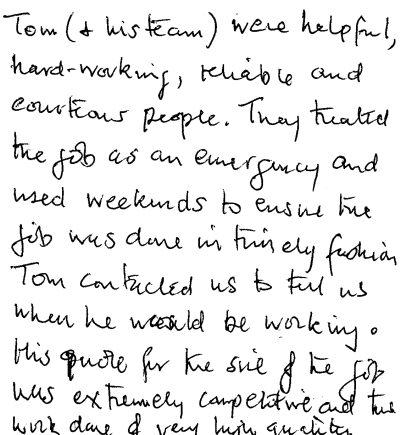 Tom (& his team) were helpful,
hard-working, reliable and
courteous people. They treated
the job as an emergency and
used weekends to ensure the
job was done in timely fashion
Tom contacted us to tell us
when he would be working.
His quote for the size of the job
was extremely competitive and the
work done of very high quality